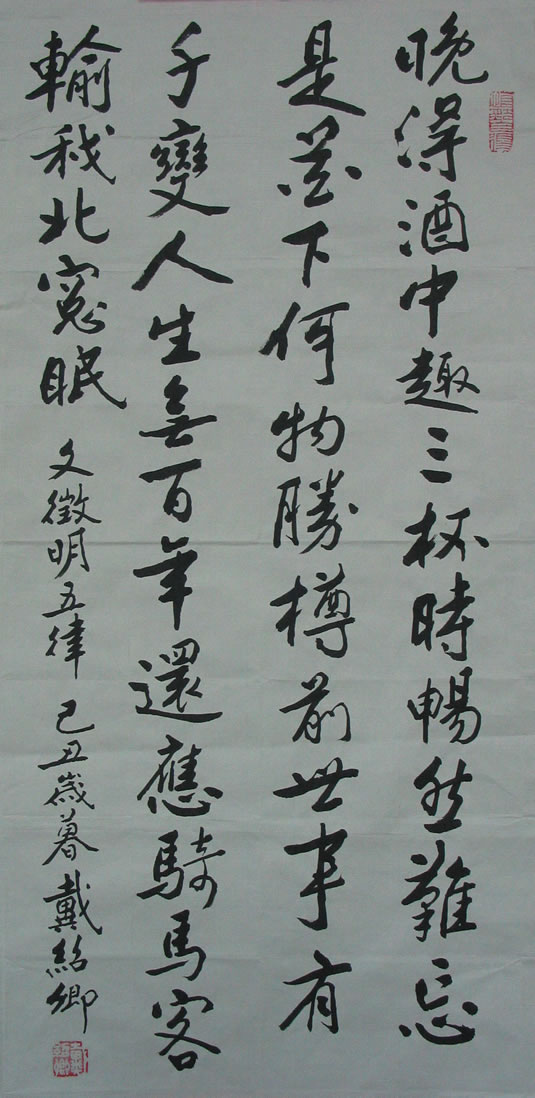 晚得酒中趣三杯時暢然難忘
是花下何物勝樽前世事有
千變人生無百年還應騎馬客
輸我北窗眠
文徵明五律 己丑歲暮 戴紹卿